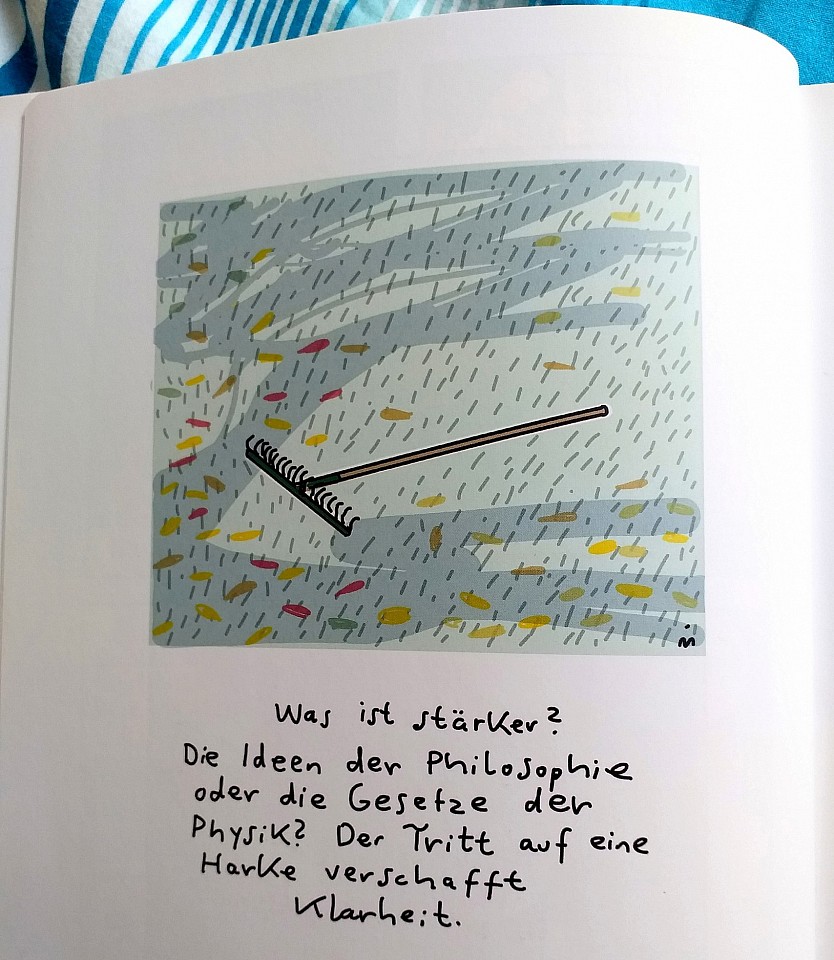 Was ist stärker?
Die Ideen der Philosophie
oder die Gesetze der
Physik? Der Tritt auf eine
Harke verschafft
Klarheit.